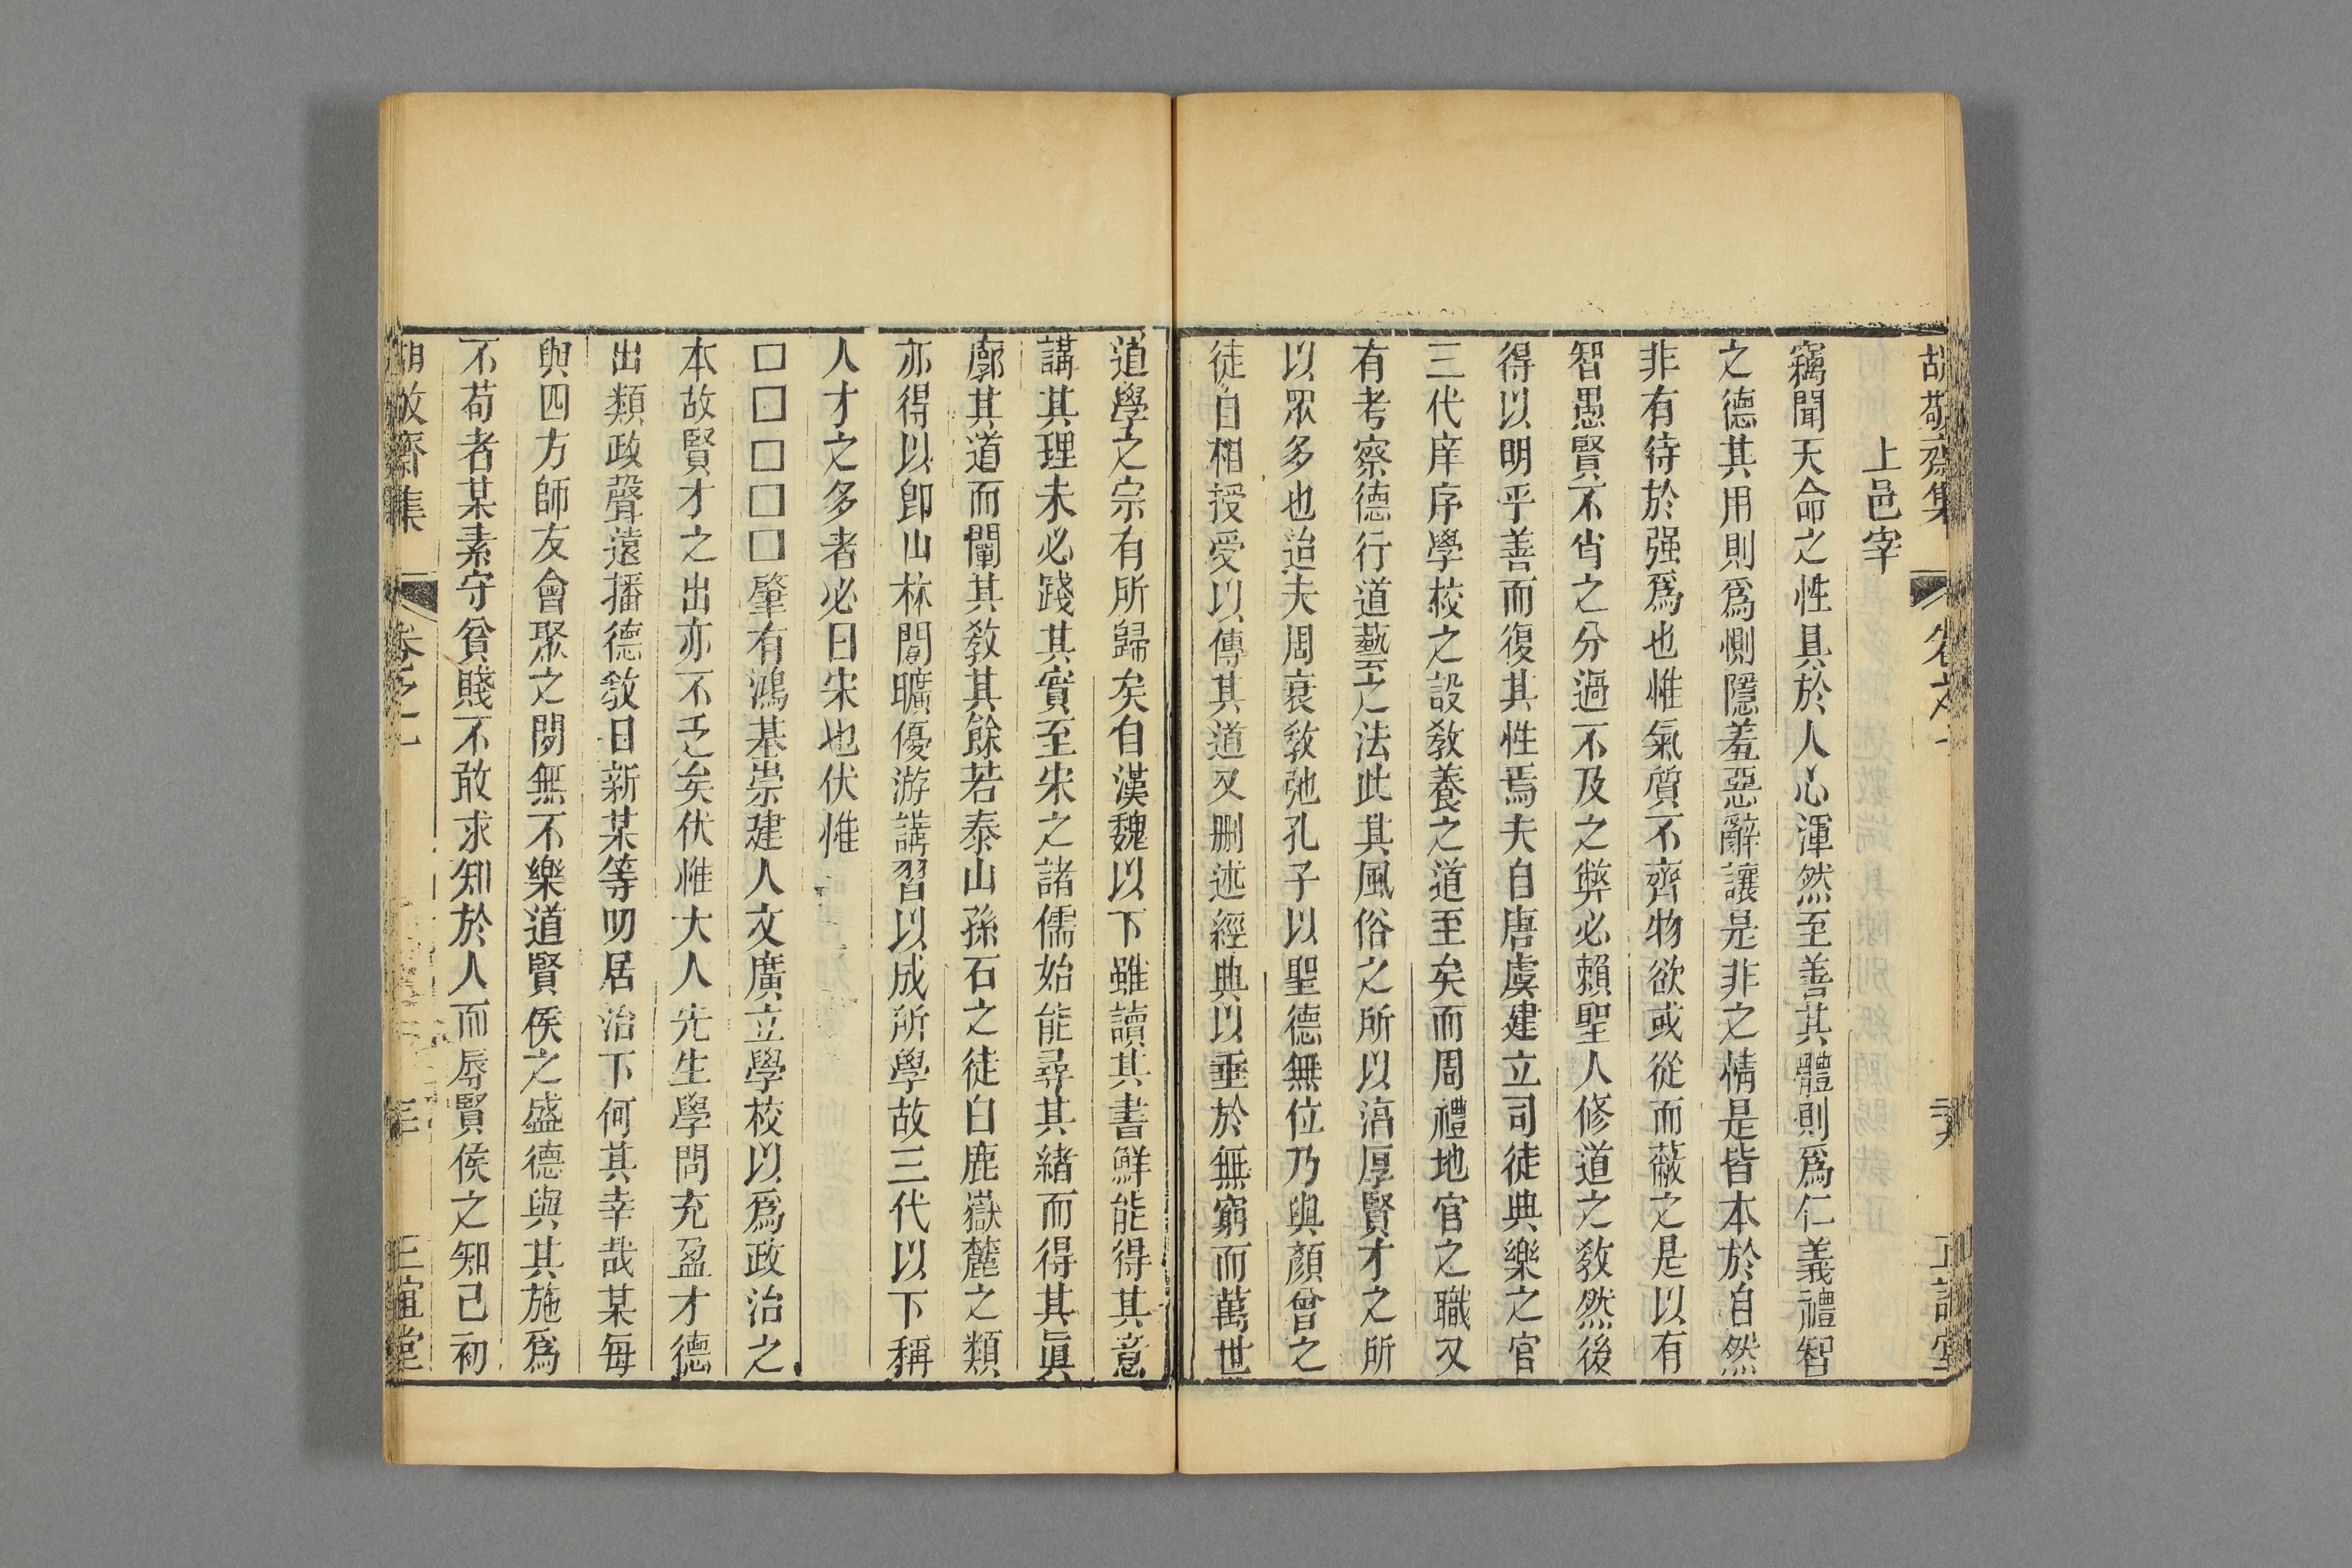 胡敬齋集 卷之一 正誼堂
上邑宰
竊聞天命之性具於人心渾然至善其體則爲仁義禮智
之德其用則爲惻隱羞惡辭讓是非之情是皆本於自然
非有待於强爲也惟氣質不齊物欲或從而蔽之是以有
智愚賢不肖之分過不及之弊必賴聖人修道之敎然後
得以明乎善而復其性焉夫自唐虞建立司徒典樂之官
三代庠序學校之設敎養之道至矣而周禮地官之職又
有考察德行道藝之法此其風俗之所以淳厚賢才之所
以眾多也迨夫周衰敎弛孔子以聖德無位乃與顏曾之
徒自相授受以傳其道又删述經典以垂於無窮而萬世
道學之宗有所歸矣自漢魏以下雖讀其書鮮能得其意
講其理未必踐其實至宋之諸儒始能尋其緒而得其眞
廓其道而闡其敎其餘若泰山孫石之徒白鹿嶽麓之類
亦得以卽山林閒曠優游講習以成所學故三代以下稱
人才之多者必曰宋也伏惟
□□□□□肇有鴻基崇建人文廣立學校以爲政治之
本故賢才之出亦不乏矣伏惟大人先生學問充盈才德
出類政聲遠播德敎日新某等叨居治下何其幸哉某每
與四方師友會聚之閒無不樂道賢侯之盛德與其施爲
不苟者某素守貧賤不敢求知於人而辱賢侯之知己初
胡敬齋集 卷之一 三 正誼堂